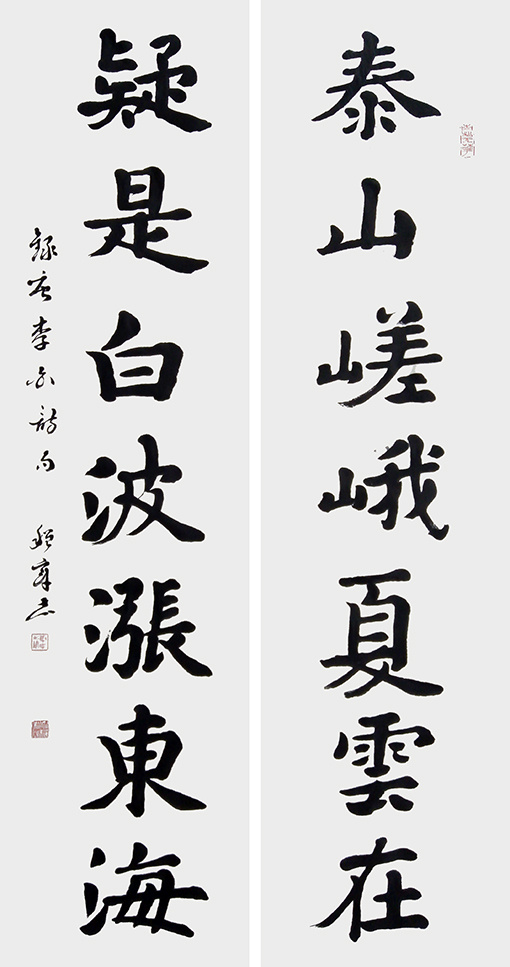 泰山嵯峨夏雲在
疑是白波漲東海
錄唐李白詩句